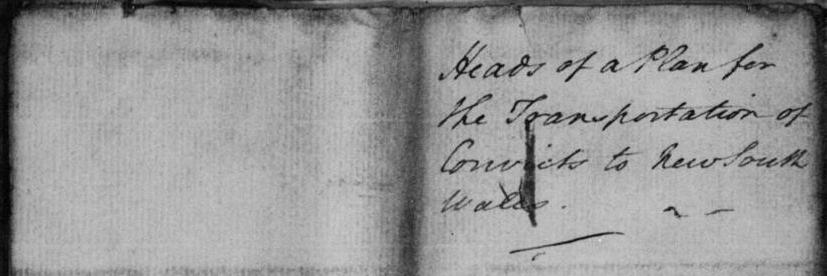 Heads of a Plan for
the Transportation of
Convicts to New South
Wales.